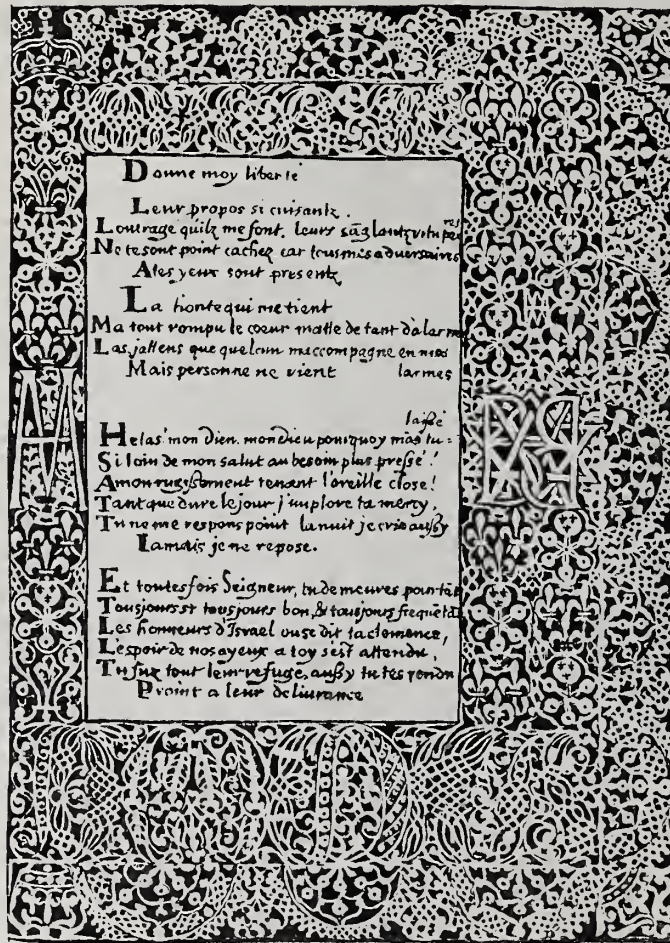 Donne moy liberté
Leur propos si cuisantz.
Loutrage quilz me font. leurs sãglantz vitupe
res
Ne te sont point cachez car tous mes adversaires
A tes yeux sont presentz
La honte qui me tient
Ma tout rompu le coeur matte de tant dalarmes
Las, jattens que quelcun maccompagne en mes
Mais personne ne vient larmes
laißé
Helas! mon dieu, mon dieu pourquoy mas tu=
Si loin de mon salut au besoin plus pressé!
A mon rugißement tenant l'oreille close!
Tant que dure le jour j'implore ta mercy,
Tu ne me respons point la nuit je crie außy
Iamais je ne repose.
Et toutesfois Seigneur, tu demeures pourtãt
Tousjours st tousjours bon, & tousjours frequẽtã
Les honneurs d'Israel ou se dit ta clemence,
Lespoir de nos ayeux a toy sest attendu,
Tu fuz tout leur refuge, außy tu tes rendu
Promt a leur delivrance